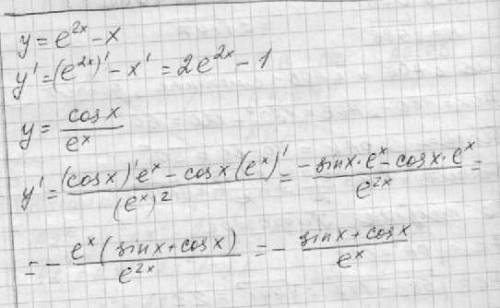 y = e^{2x} - x
y' = (e^{2x})' - x' = 2e^{2x} - 1
y = \frac{cosx}{e^x}
y' = \frac{(cosx)'e^x - cosx(e^x)'}{(e^x)^2} = \frac{-sinx·e^x - cosx·e^x}{e^{2x}} =
= - \frac{e^x(sinx + cosx)}{e^{2x}} = - \frac{sinx + cosx}{e^x}